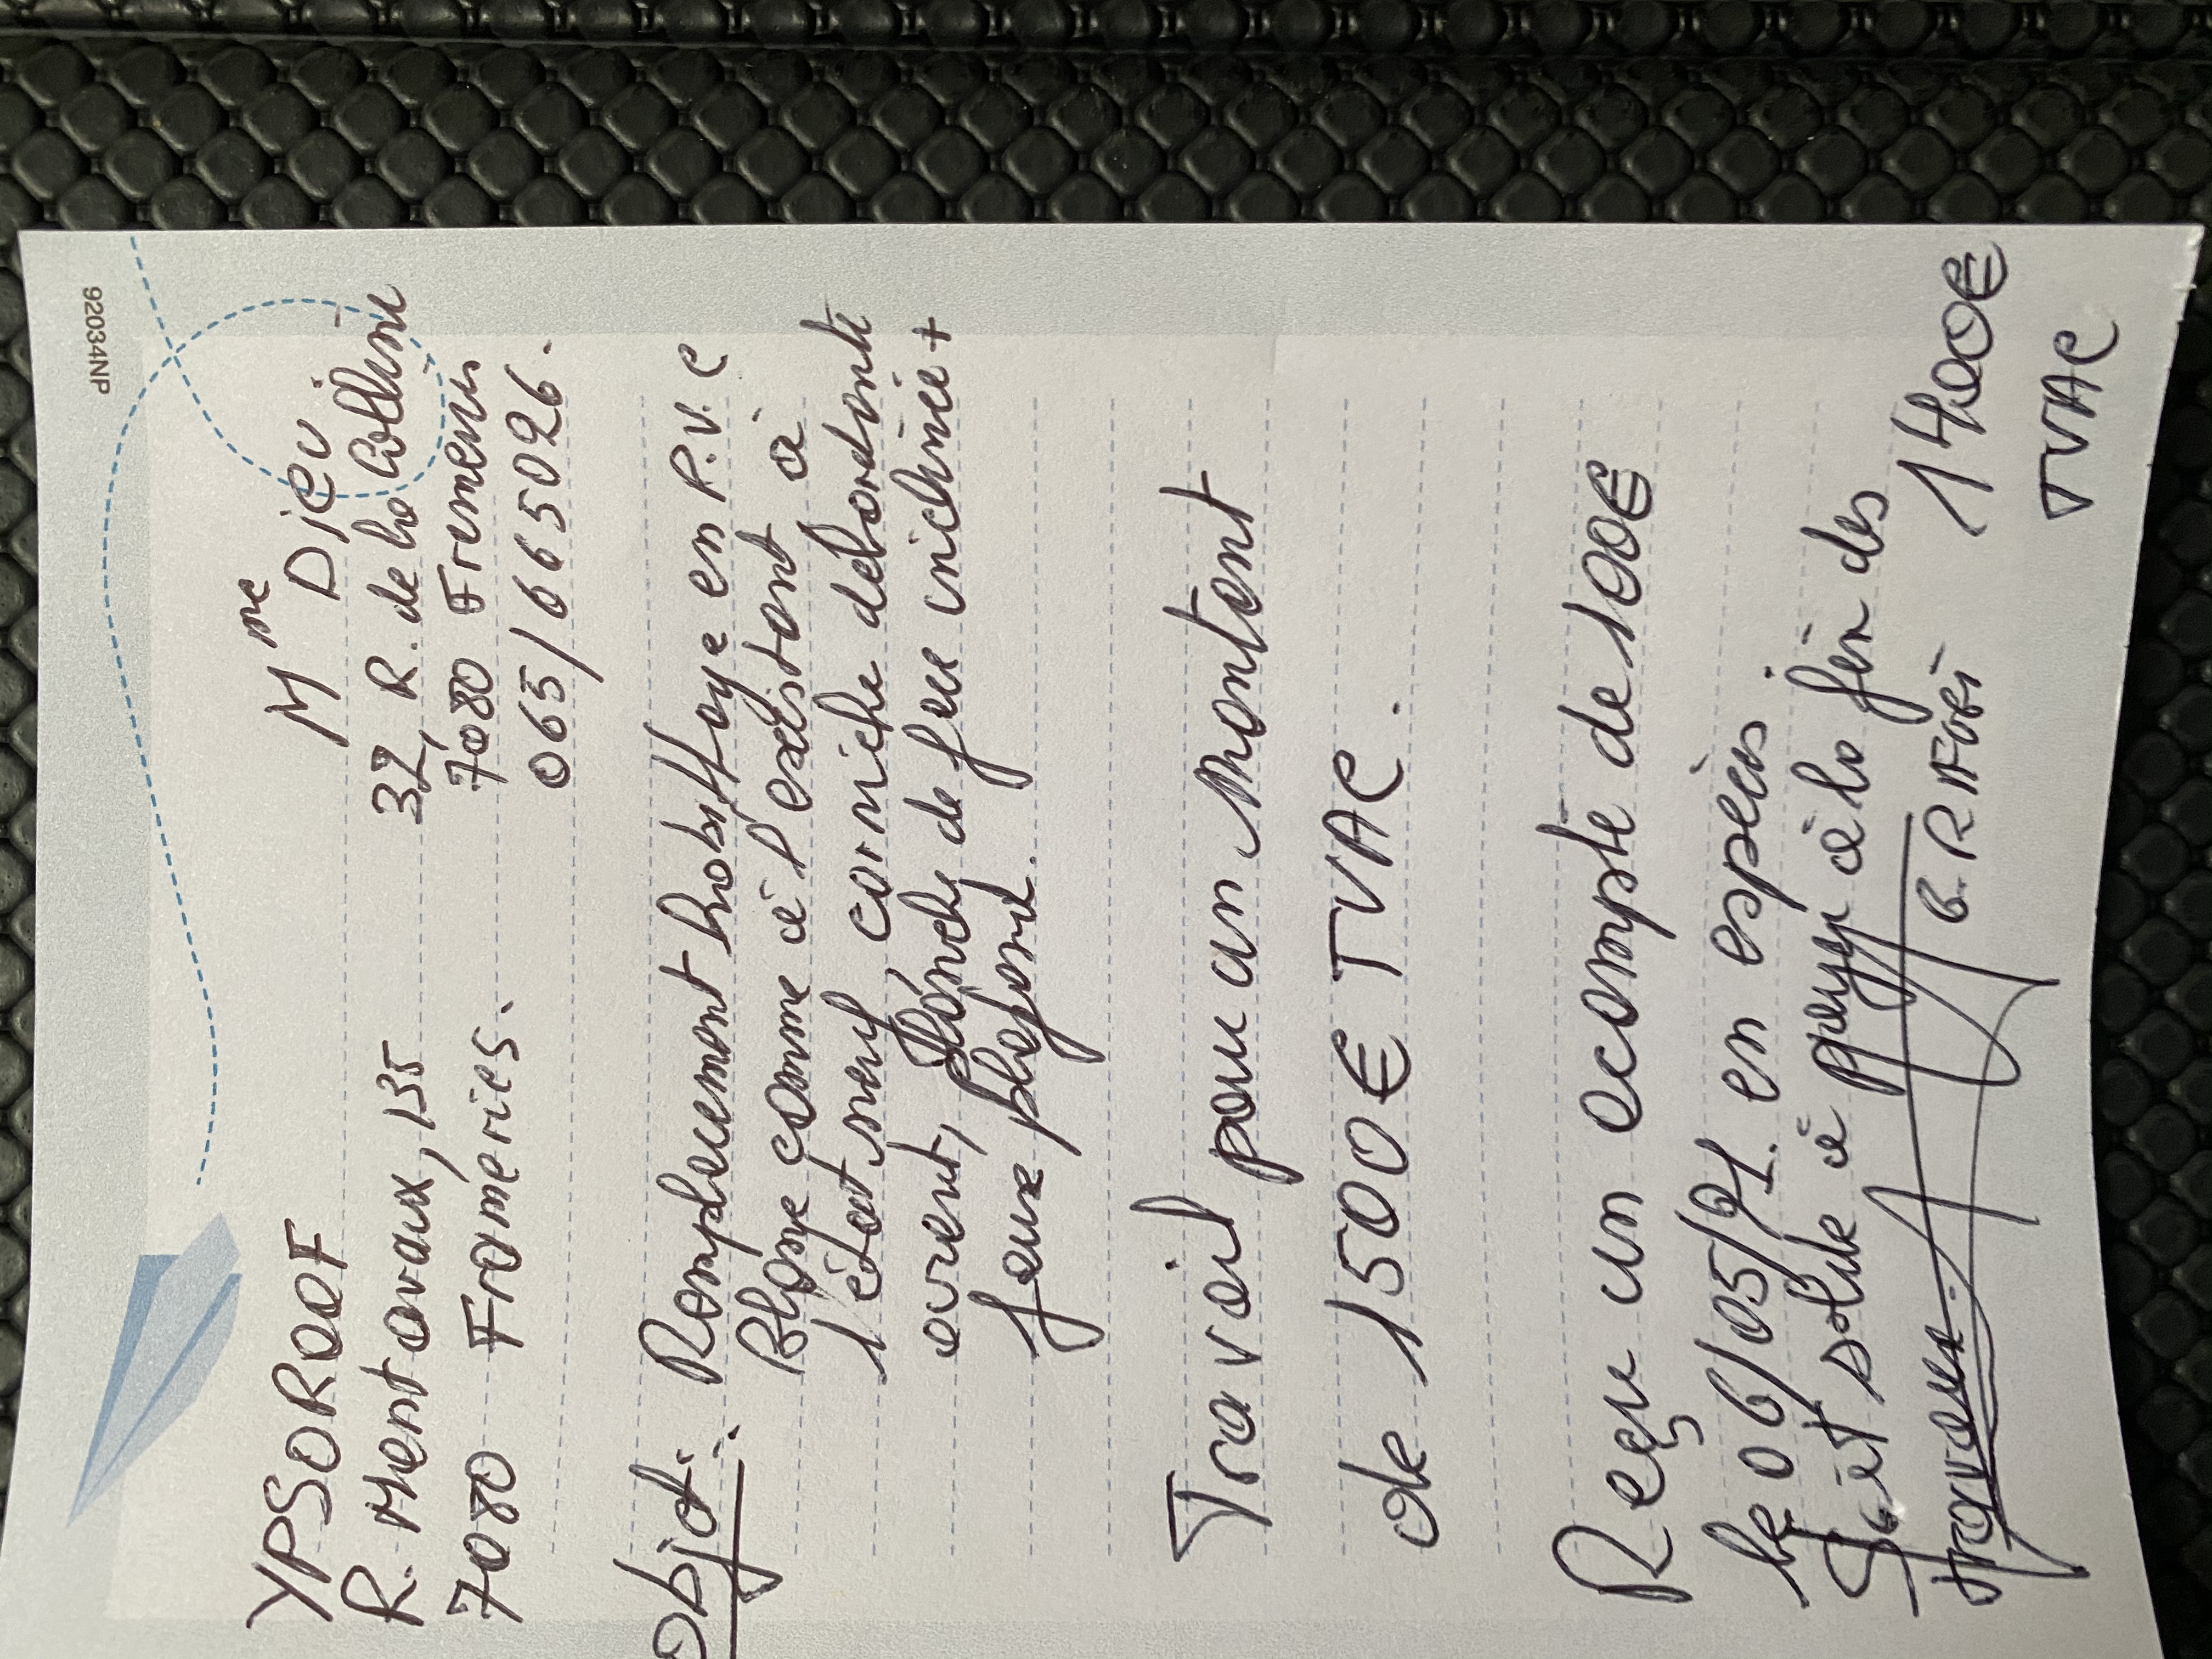 92034NP
YPSOROOF
R. Mentavaux, 135
7080 Frameries.
Mme Dieu
32, R. de la Colline
7080 Frameries
065/665026.
Objet: Remplacement habillage en P.V.C
Blanc comme à l'existant à
l'état neuf, corniche débordante
avant, planche de face inclinée +
faux plafond.
Travail pour un Montant
de 1500€ TVAC.
Reçu un acompte de 100€
le 06/05/21. en espèces
Soit solde à payer à la fin des
travaux. 1400€
TVAC